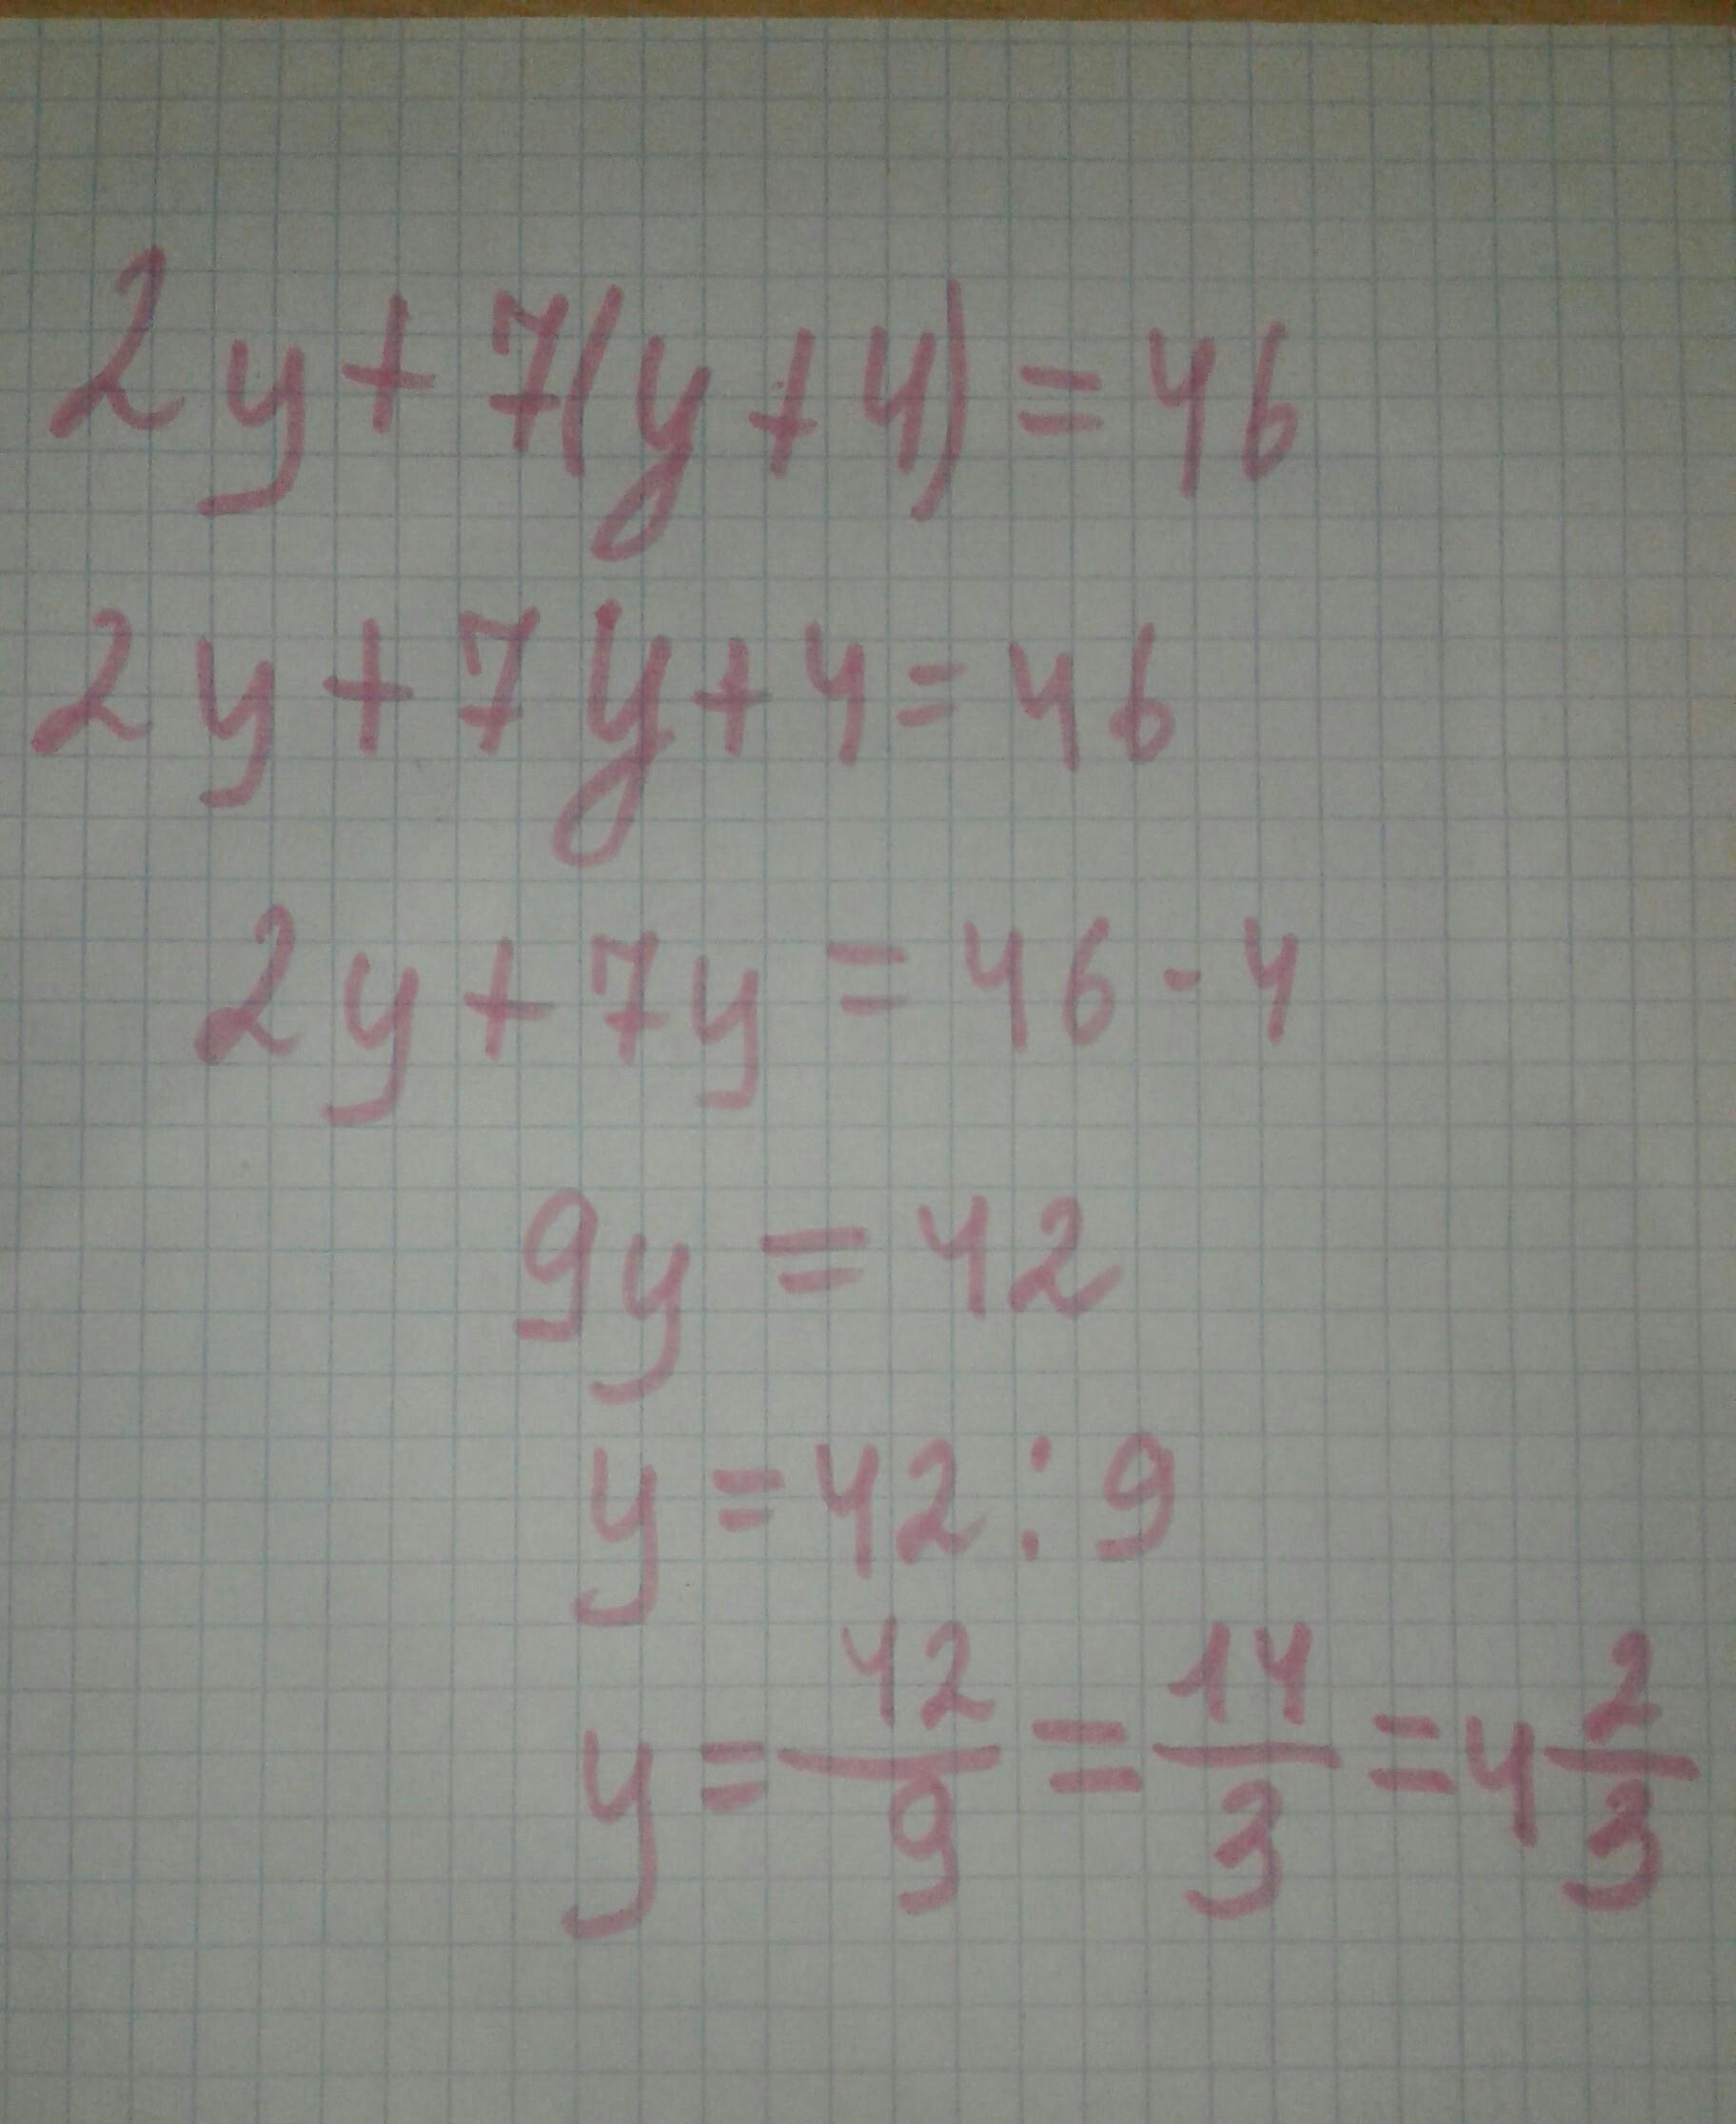 2y + 7(y + 4) = 46
2y + 7y + 4 = 46
2y + 7y = 46 - 4
9y = 42
y = 42 : 9
y = 42/9 = 14/3 = 4 2/3